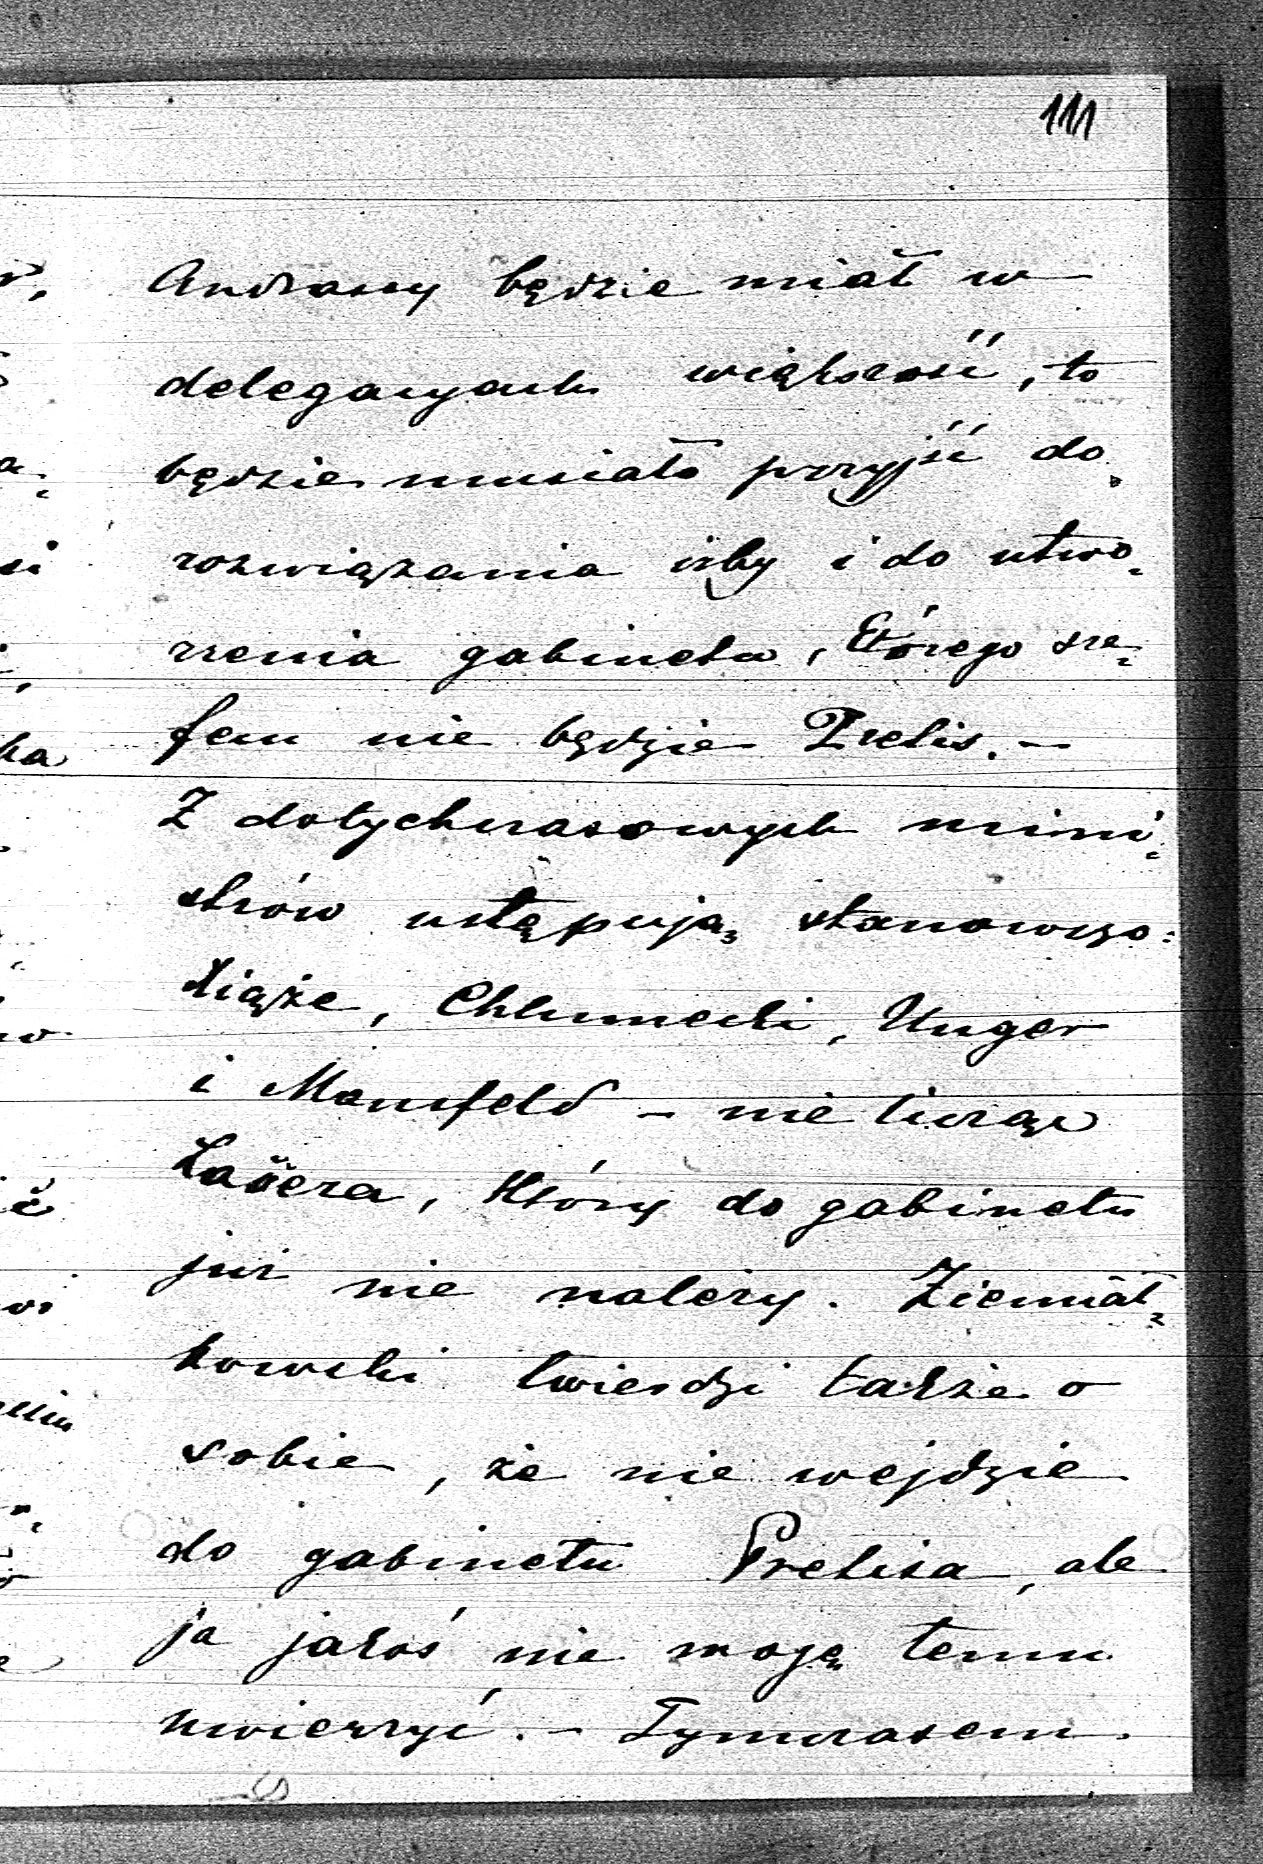 111
Andrassy będzie miał w
delegacyach większość, to
będzie musiało przyjść do
rozwiązania izby i do utwo-
rzenia gabinetu, którego sze-
fem nie będzie Pretis. –
Z dotychczasowych mini-
strów ustępują stanowczo:
Xiąże, Chlumecki, Unger
i Mansfeld – nie licząc
Lassera, który do gabinetu
już nie należy. Ziemiał-
kowski twierdzi także o
sobie, że nie wejdzie
do gabinetu Pretisa, ale
ja jakoś nie mogę temu
uwierzyć. – Tymczasem